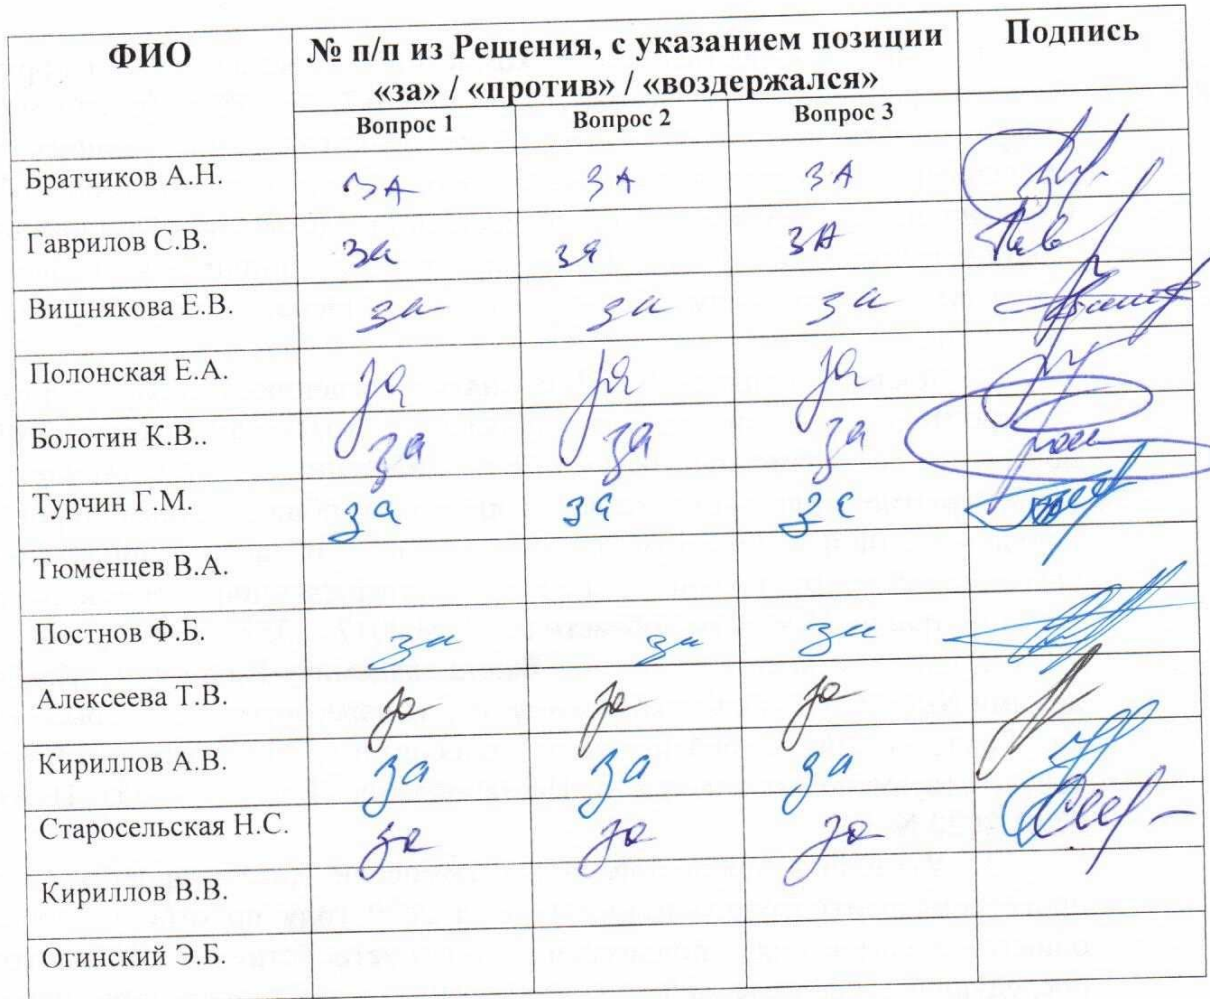 ФИО № п/п из Решения, с указанием позиции Подпись
«за» / «против» / «воздержался»
Вопрос 1 Вопрос 2 Вопрос 3
Братчиков А.Н. ЗА ЗА ЗА
Гаврилов С.В. за за ЗА
Вишнякова Е.В. за за за
Полонская Е.А. за за за
Болотин К.В.. за за за
Турчин Г.М. за за за
Тюменцев В.А.
Постнов Ф.Б. за за за
Алексеева Т.В. за за за
Кириллов А.В. за за за
Старосельская Н.С. за за за
Кириллов В.В.
Огинский Э.Б.